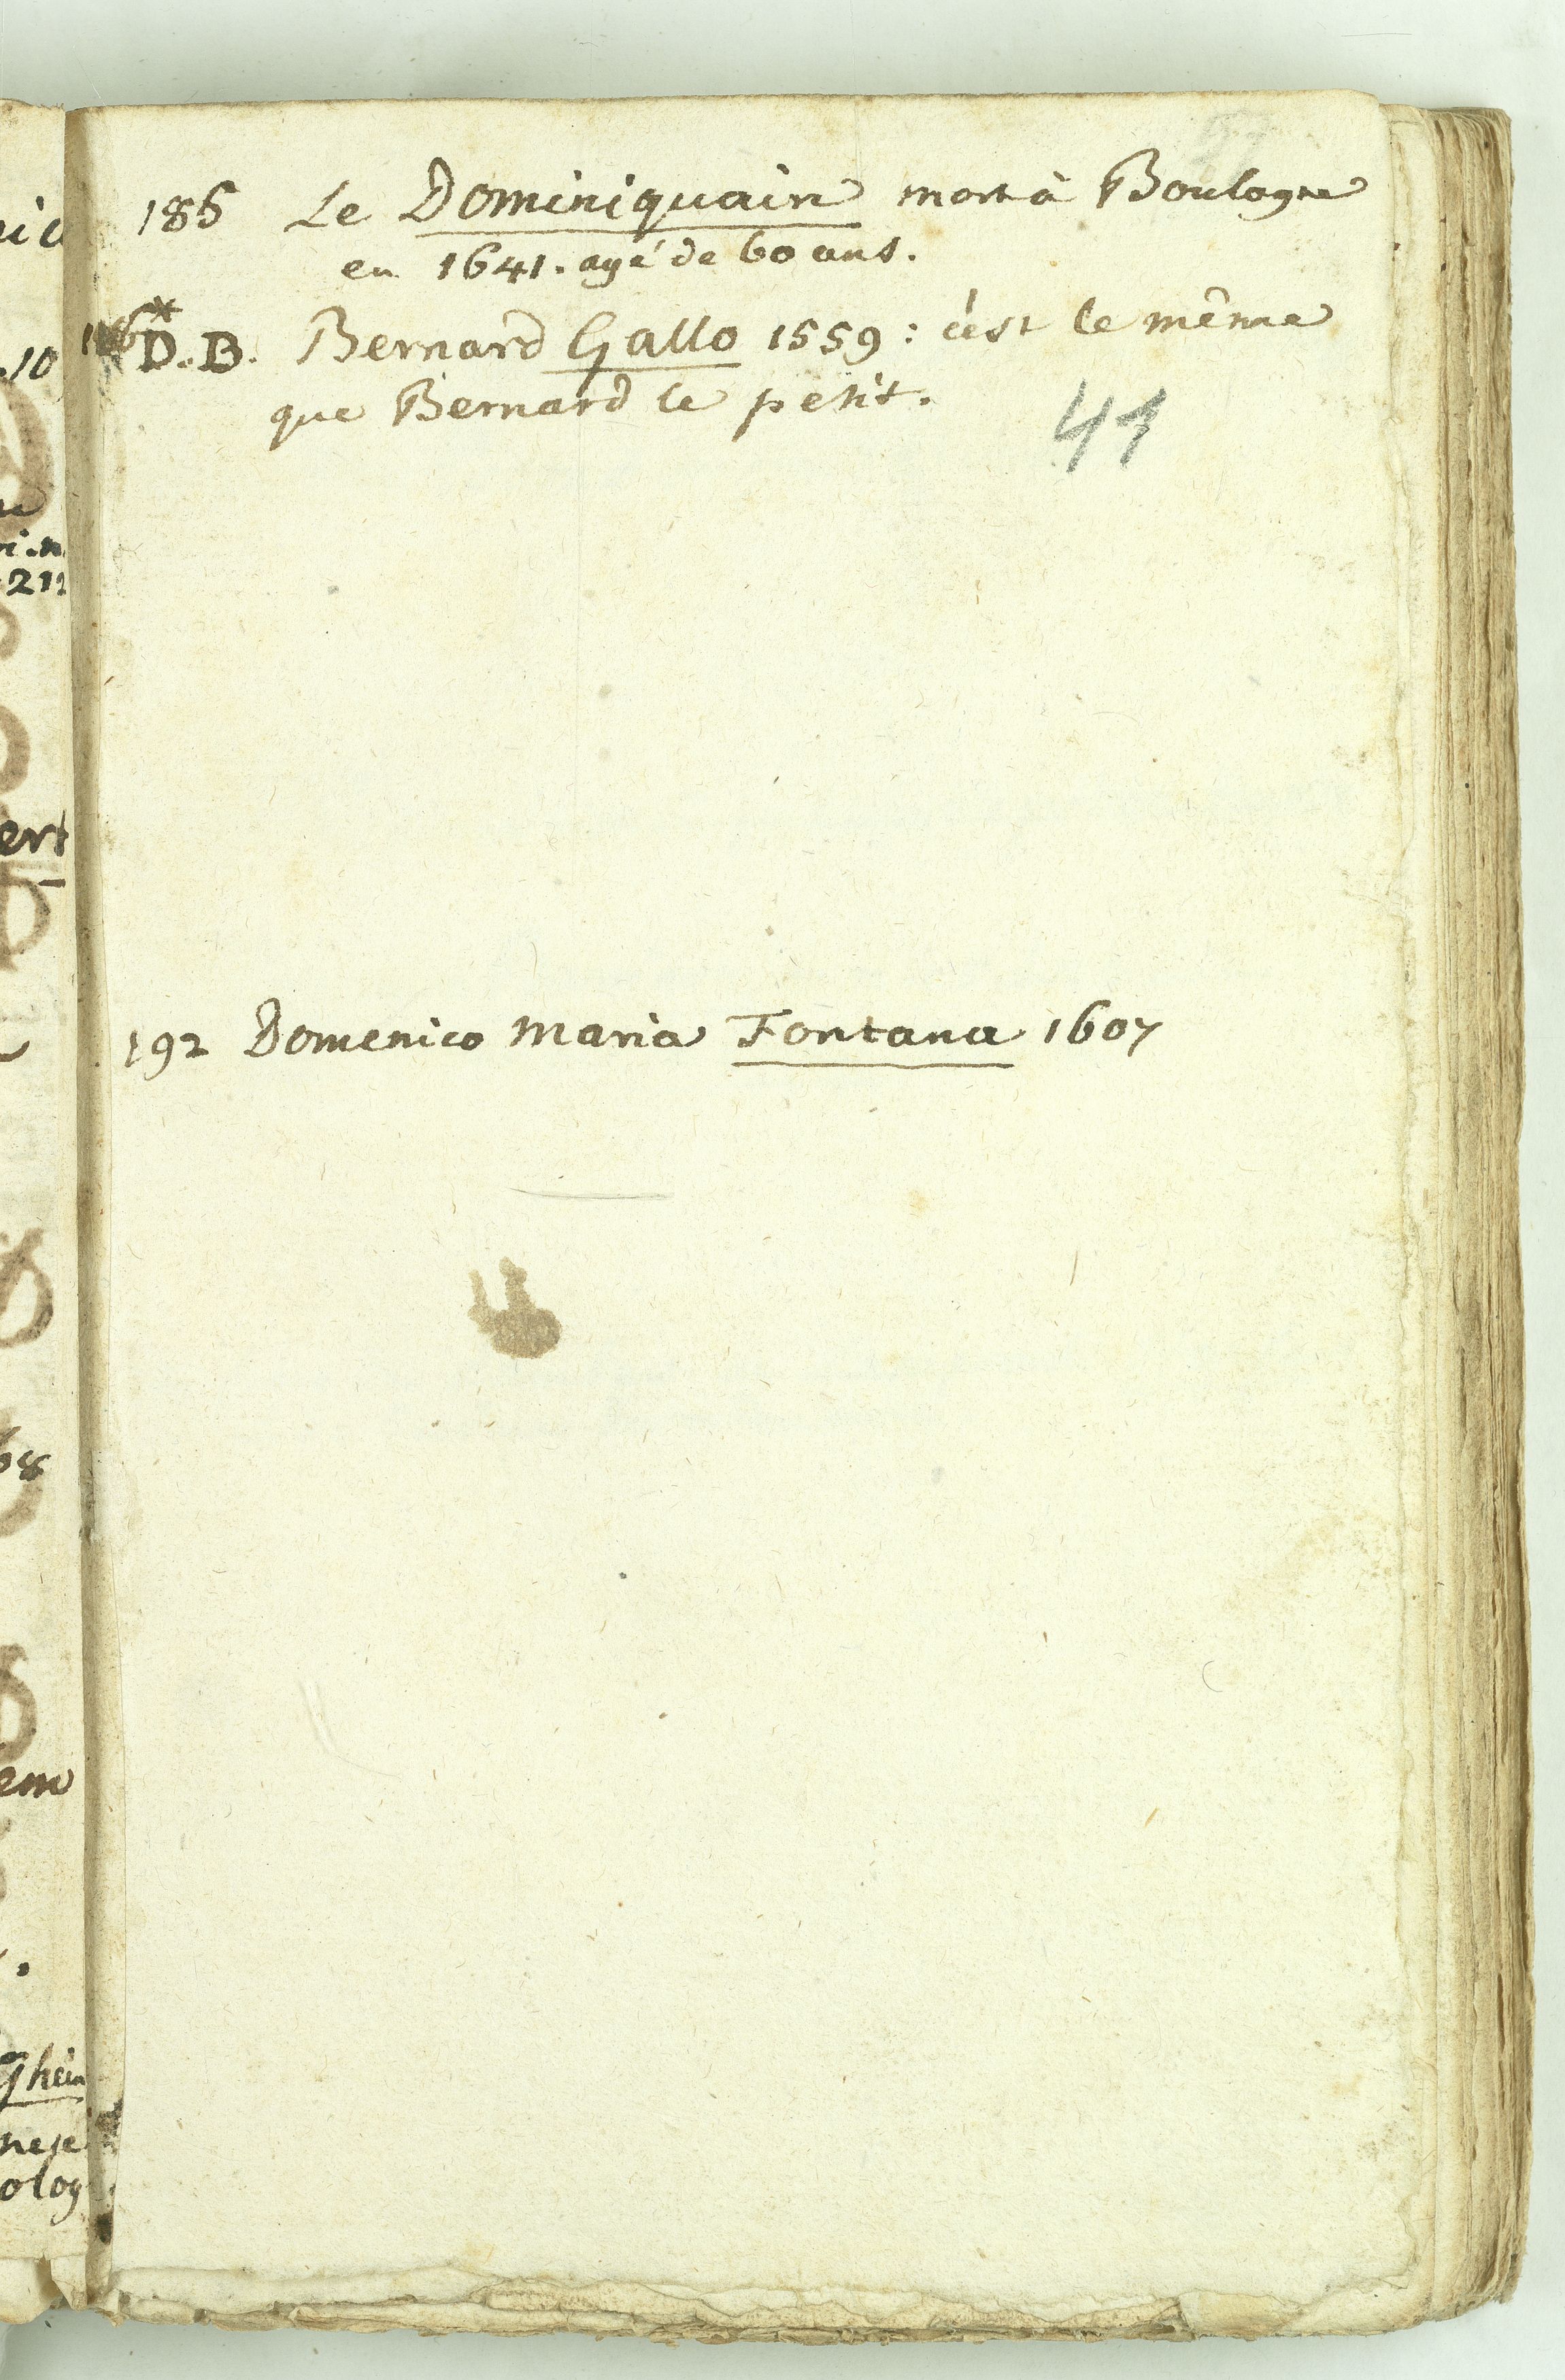 185 Le Dominiquain mort à Boulogne
en 1641. agé de 60 ans.
186 *D.B. Bernard Gallo 1559: c'est le même
que Bernard le petit.
41
192 Domenico Maria Fontana 1607